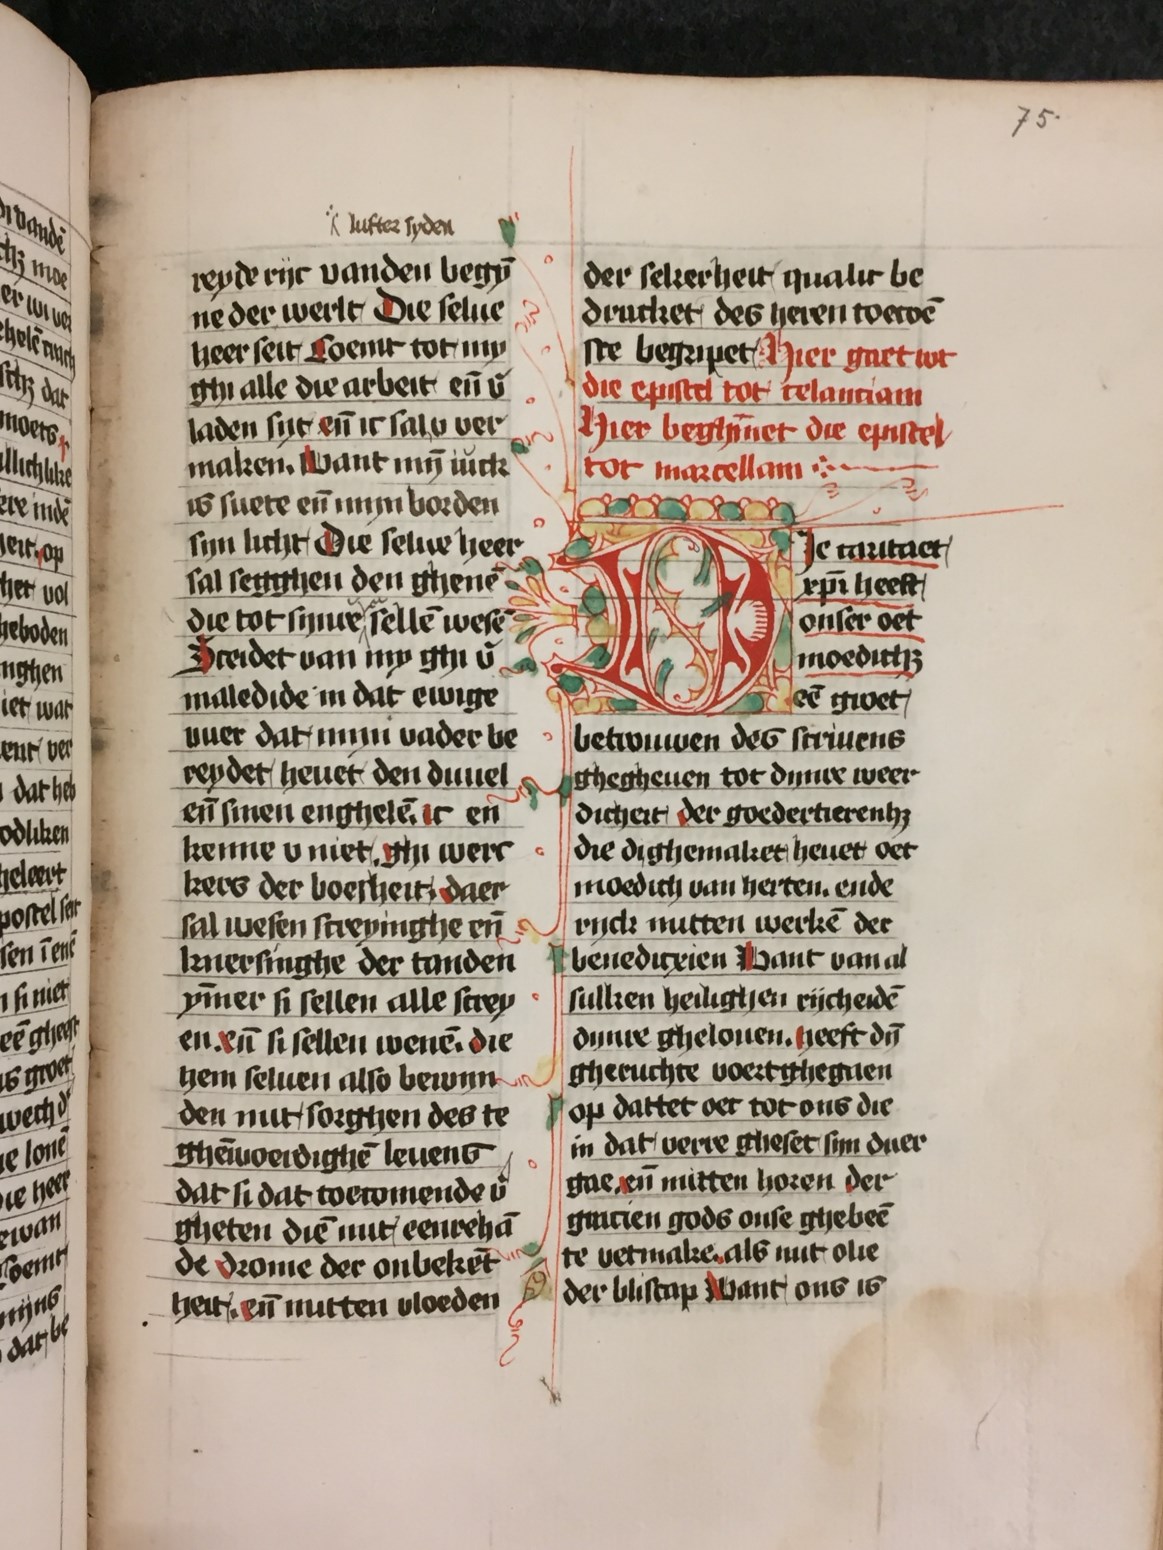 75.
lufter syden
reyde rijc vanden begȳ
ne der werlt Die selue
heer seit Coemt tot my
ghi alle die arbeit eñ v̄
laden sijt eñ ic sal v ver
maken. Want mijn iuck
is suete eñ mijn borden
sijn licht Die selue heer
sal segghen den ghenē
die tot sijnre sellē wesē
Sceidet van my ghi v̄
maledide in dat ewige
vuer dat mijn vader be
reydet heuet den duuel
eñ sinen enghelē. ic en
kenne v niet. ghi werc
kers der boesheit. daer
sal wesen screyinghe eñ
knersinghe der tanden
ym̄er si sellen alle screy
en. eñ si sellen wenē. die
hem seluen also bewin
den mit sorghen des te
ghēwoerdighē leuens
dat si dat toecomende v̄
gheten diē mit eenrehā
de drome der onbekēt
heit. eñ mitten vloeden
der sekerheit qualic be
drucket des heren toecoē
ste begripet Hier gaet wt
die epistel tot celanciam
Hier beghīnet die epistel
tot marcellam
Die caritaet
xpī heeft
onser oet
moedich₃
eē groet
betrouwen des scriuens
ghegheuen tot dijnre weer
dicheit der goedertierenh₃
die di ghemaket heuet oet
moedich van herten. ende
rijck mitten werkē der
benedixien Want van al
sulken heilighen rijcheidē
dijnre ghelouen. heeft dijn
gheruchte voert ghegaen
op dattet oec tot ons die
in dat verre gheset sijn duer
gae. eñ mitten horen der
gracien gods onse ghebeē
te vetmake. als mit olie
der bliscap Want ons is